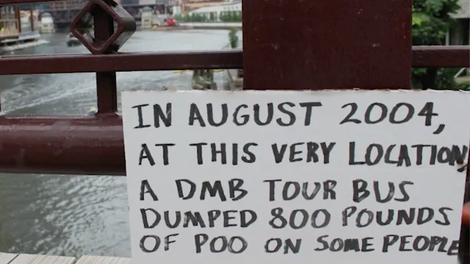 IN AUGUST 2004,
AT THIS VERY LOCATION,
A DMB TOUR BUS
DUMPED 800 POUNDS
OF POO ON SOME PEOPLE